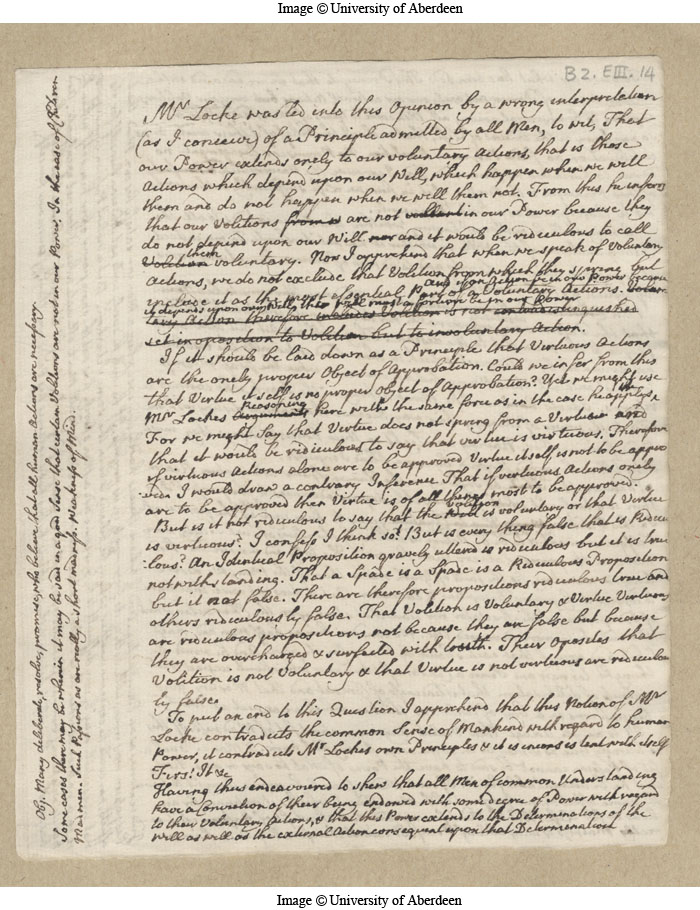 Image © University of Aberdeen
B 2. EIII. 14
Mr Locke was led into this Opinion by a wrong interpretation
(as I conceive) of a Principle admitted by all Men, to wit, That
our Power extends onely to our voluntary Actions, that is those
Actions which depend upon our Will, which happen when we will
them and do not happen when we will them not. From this he infers
that our Volitions from are not in our Power because they
do not depend upon our Will nor and it would be ridiculous to call
Volition them voluntary. Now I apprehend that when we speak of Voluntary
Actions, we do not exclude that Volition from which they spring but
include it as the most essential Part of a Voluntary Actions.
tary Action therefore includes Volition is not contradistinguished
set in opposition to Volition but to involuntary Action.
If it should be laid down as a Principle that Virtuous Actions
are the onely proper Object of Approbation. Could we infer from this
that Virtue itself is no proper object of Approbation? Yet we might use
Mr Lockes Reasoning here with the same force as in the case he applys it
For we might say that Virtue does not spring from a Virtue and
that it would be ridiculous to say that virtue is virtuous. Therefore
if virtuous Actions alone are to be approved Virtue itself is not to be appro
ved. I would draw a contrary Inference That if virtuous Actions onely
are to be approved then Virtue is of all things most to be approved.
But is it not ridiculous to say that the Volition is voluntary or that Virtue
is virtuous? I confess I think so! But is every thing false that is Ridicu
lous? An Identical Proposition gravely uttered is ridiculous but it is true
notwithstanding. That a Spade is a Spade is a Ridiculous Proposition
but it not false. There are therefore propositions ridiculous true and
others ridiculously false. That Volition is Voluntary & Vertue Vertuous
are ridiculous propositions not because they are false but because
they are overcharged & surfeited with truth. Their Oposites that
Volition is not Voluntary & that Virtue is not virtuous are ridiculous
ly false.
To put an end to this Question I apprehend that this Notion of Mr
Locke contradicts the common Sense of Mankind with regard to human
Power, it contradicts Mr Lockes own Principles & it is inconsistent with itself
First It &c
Having thus endeavoured to shew that all Men of common Understanding
have a Conviction of their being endowed with some degree of Power with regard
to their Voluntary Actions, & that this Power extends to the Determinations of the
will as well as the external Action consequent upon that Determination
Obj. Many deliberate, resolve, promise, who believe that all human Actions are necessary.
Some cases there may be wherein it may be said in a good Sense that certain Volitions are not in our Power. In the case of Children
Madmen. Such Passions as are really a short madness. Weakness of Mind.
Image © University of Aberdeen